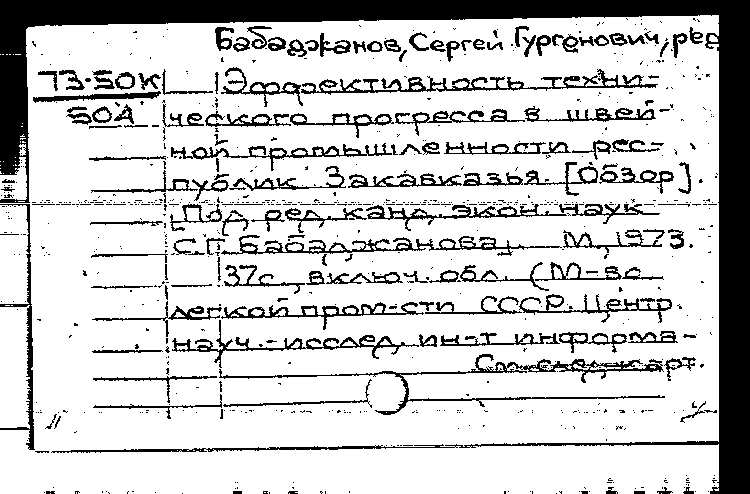 Бабаджанов, Сергей Гургенович, ред
73-50К Эффективность техни-
50А ческого прогресса в швей-
ной промышленности рес-
публик Закавказья. [Обзор].
[Под ред. канд. экон. наук
С.Г. Бабаджанова]. М., 1973.
37с., включ. обл. (М-во
легкой пром-сти СССР. Центр.
науч.-исслед. ин-т информа-
См. след. карт.